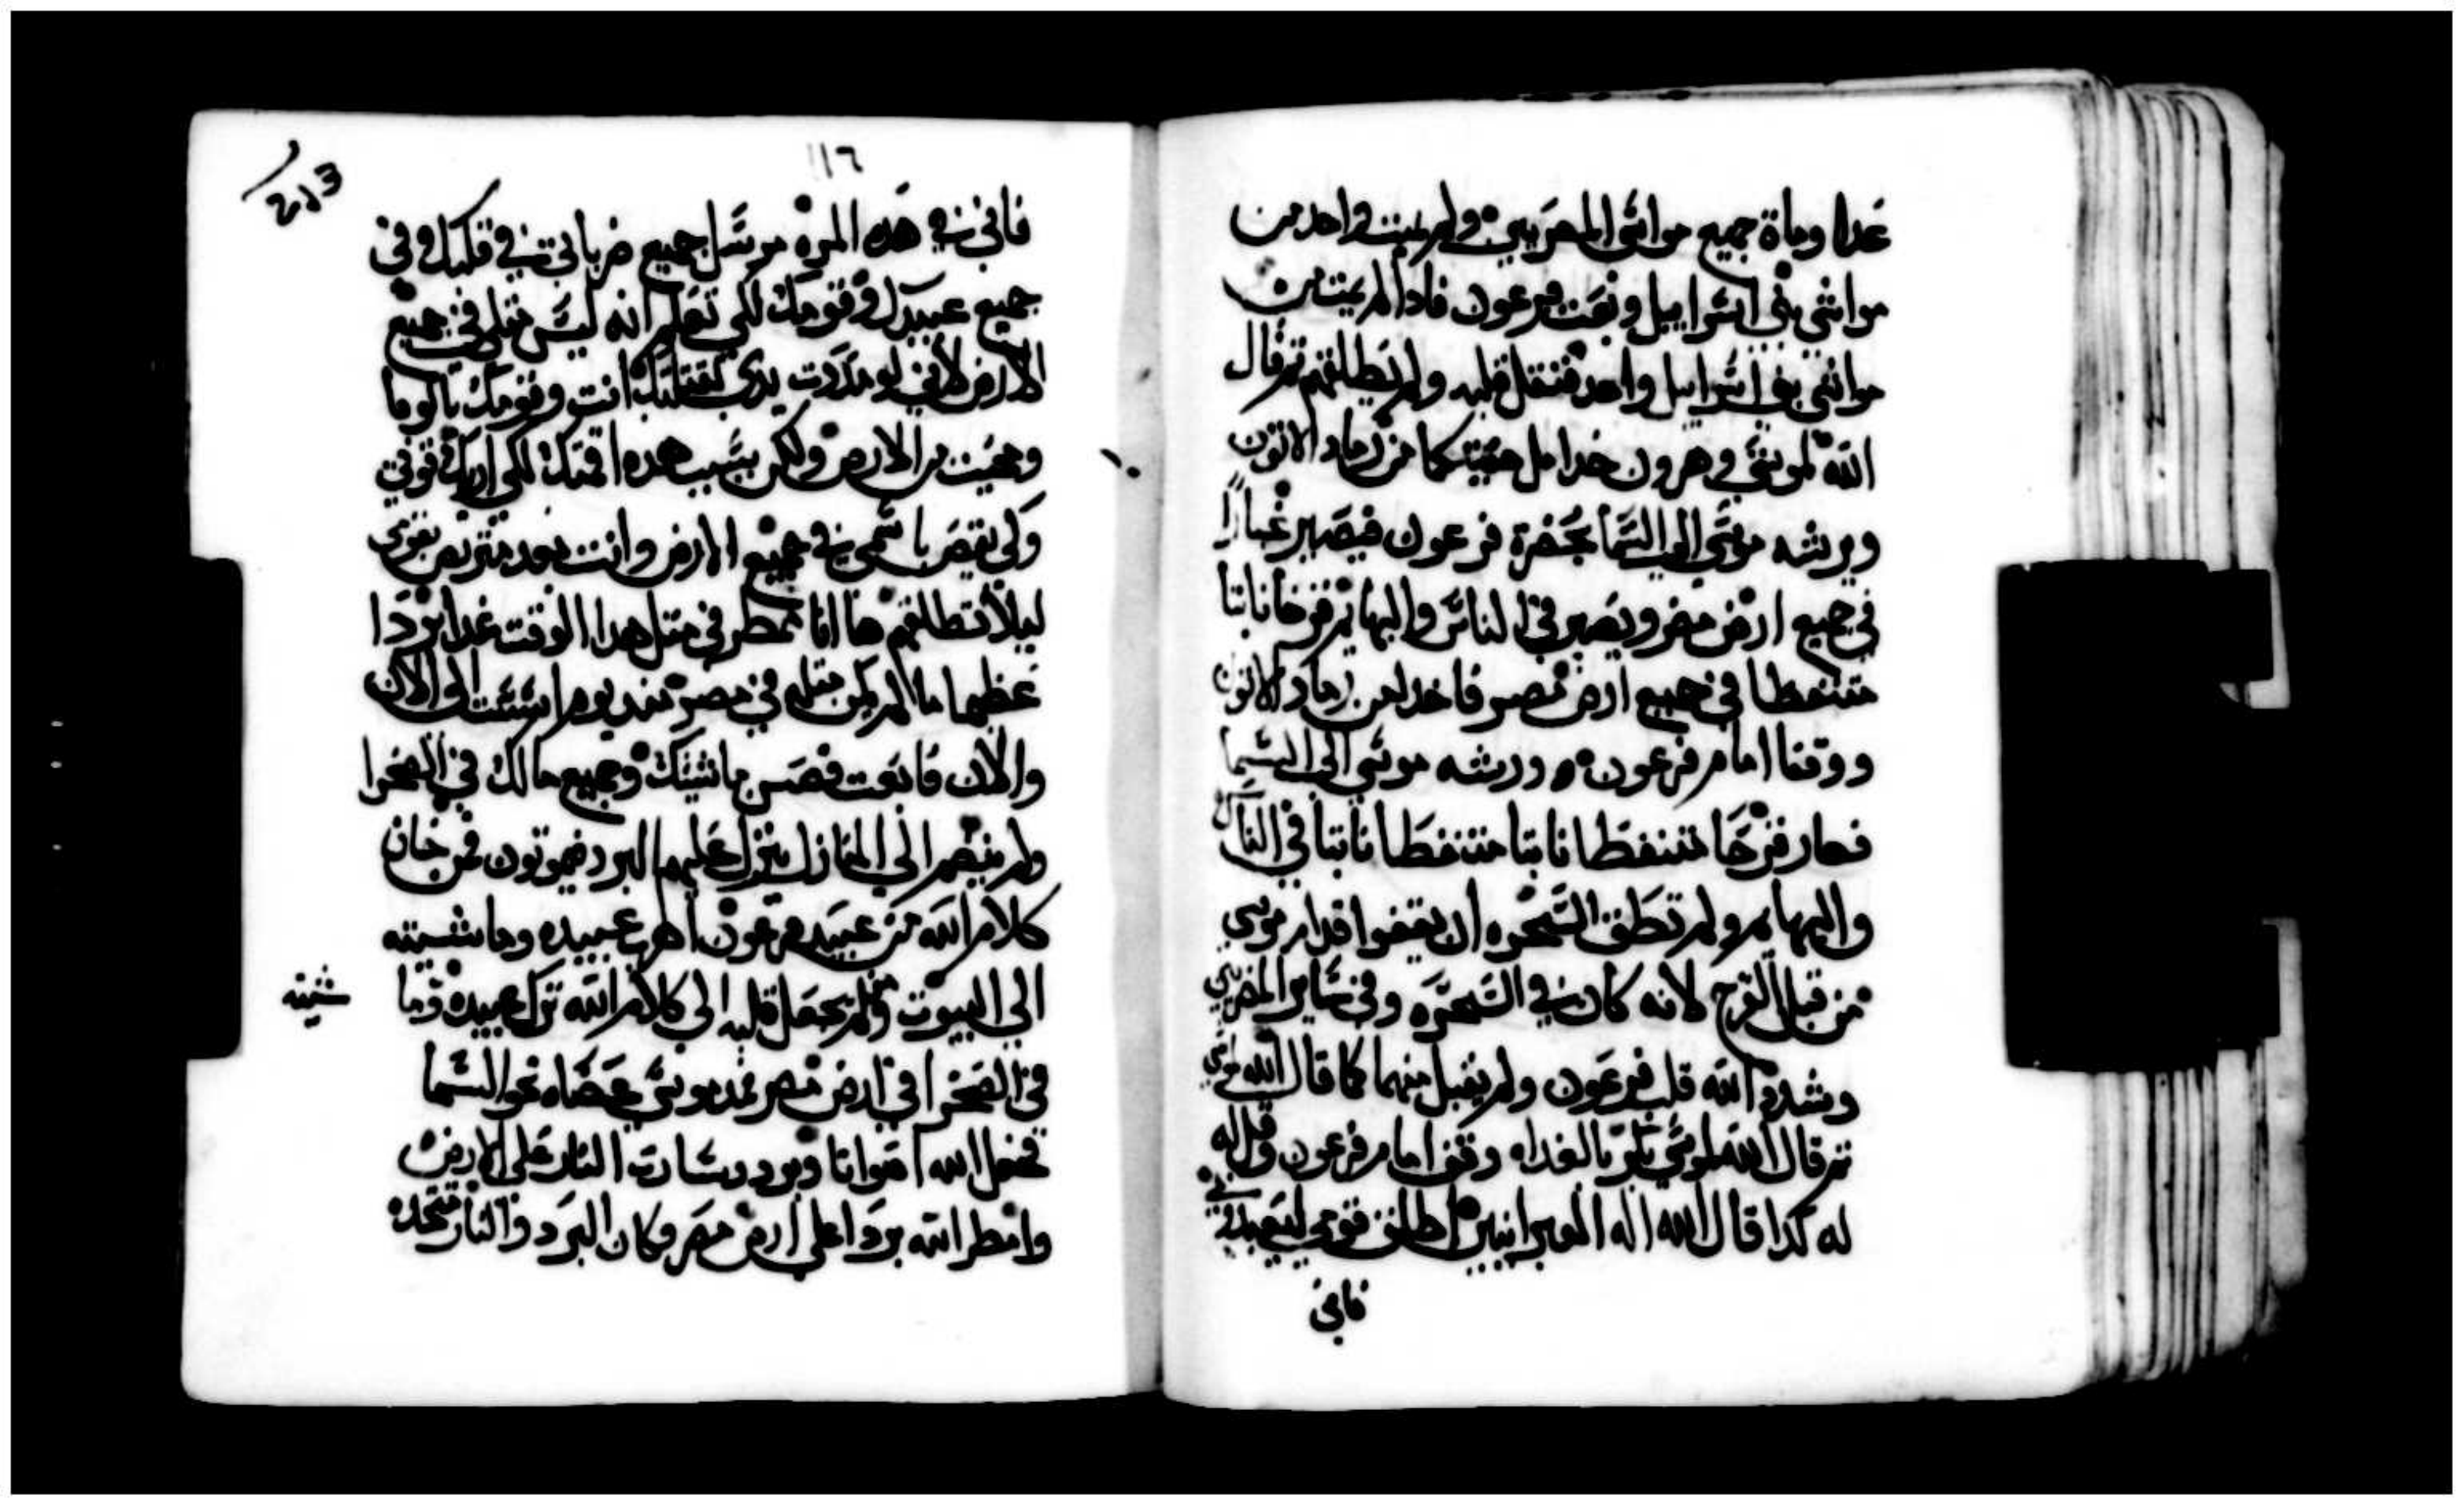 غدا وماة جميع مواشي المصريين ولم يمت واحد من
مواشي بني اسراييل وبعت فرعون فادا لم يمت من
مواشي بني اسراييل واحد فتقل قلبه ولم يطلقهم تم قال
الله لموسي وهرون خدا مل حفنتيكما من رماد الاتون
ويرشه موسي الي السما بحضرة فرعون فيصير غبارا
في جميع ارض مصر ويصير في الناس والبهايم قرحا نابتا
متنفطا في جميع ارض مصر فاخدا من رماد الاتون
ووقفا امام فرعون ورشه موسي الي السما
فصار قرحا متنفطا نابتا متنفطا نابتا في الناس
والبهايم ولم تطق السحره ان يقفوا قدام موسي
من قبل القرح لانه كان في السحره وفي ساير المصريين
وشدد الله قلب فرعون ولم يقبل منهما كما قال الله لموسي
تم قال الله لموسي بكر بالغداه وقف امام فرعون وقل له
له كدا قال الله اله العبرانيين اطلق قومي ليعبدوني
فاني
١١٦
213
فاني في هده المرة مرسل جميع ضرباتي في قلبك وفي
جميع عبيدك وقومك لكي تعلم انه ليس متلي في جميع
الارض لاني لو مددت يدي لقتلتك انت وقومك بالوبا
ومحيت من الارض ولكن بسبب هده اقمتك لكي اريك قوتي
ولكي يقص باسمي في جميع الارض وانت بعد متربص بقومي
ليلا تطلقهم ها انا ممطر في متل هدا الوقت غدا بردا
عظيما ما لم يكن متله في مصر مند يوم اسست الي الان
والان فابعت فضمن ماشيتك وجميع مالك في الصحرا
ولم ينضم الي المنازل ينزل عليهم البرد فيموتون فمن خاف
كلام الله من عبيد فرعون اهرب عبيده وماشيته
الي البيوت ومن لم يجعل قلبه الي كلام الله ترك عبيده وما
شيته
في الصحرا في ارض مصر فمد موسي عصاه نحو السما
فجعل الله اصواتا وبرد وسارت النار علي الارض
وامطر الله بردا علي ارض مصر وكان البرد والنار متحده